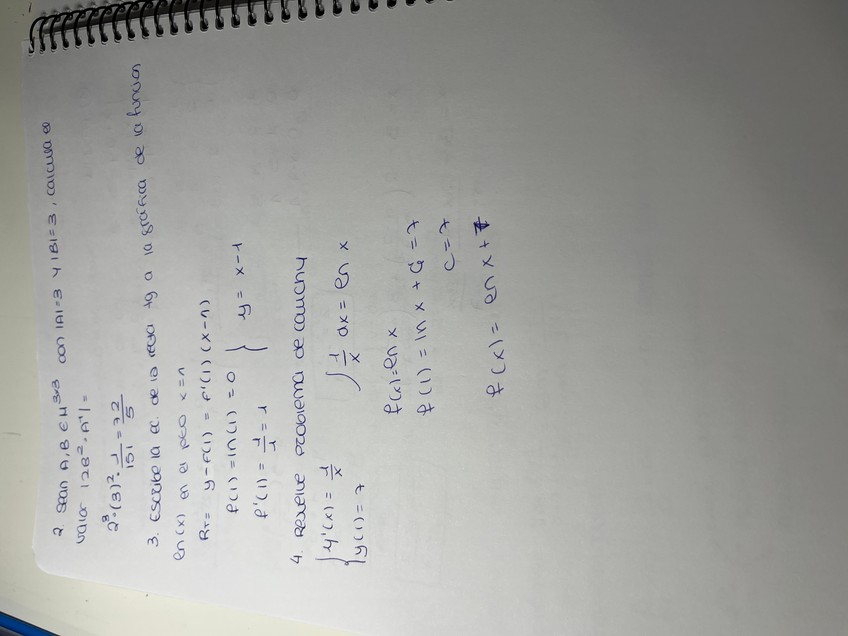 2. Sean A, B ∈ M³ˣ³ con |A|=3 y |B|=3, calcula el
valor |2B²·A⁻¹|=
2³·(3)²·1/|5|=72/5
3. Escribe la ec. de la recta tg a la gráfica de la función
ln(x) en el pto x=1
RT= y-f(1) = f'(1) (x-1)
f(1)=ln(1)=0
f'(1)=1/1=1 } y = x-1
4. Resuelve problema de cauchy
{ y'(x) = 1/x
y(1) = 7
∫ 1/x dx = ln x
f(x)=ln x
f(1) = ln x + C = 7
C = 7
f(x) = ln x + 7